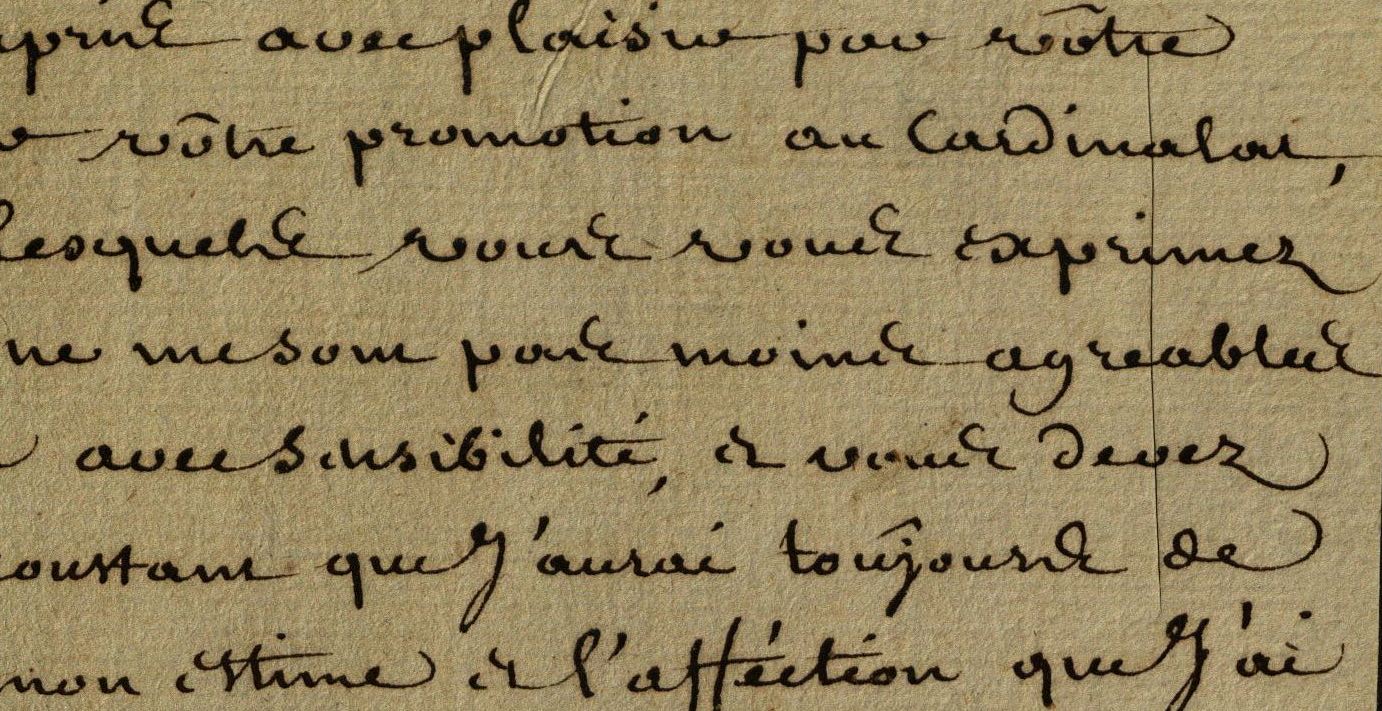 apris avec plaisir par vôtre
vôtre promotion au Cardinalat,
lesquels vous vous exprimez
ne me sont pas moins agreables
avec sensibilité, et vous devez
constant que J'aurai toûjours de
mon estime et l'afféction que J'ai